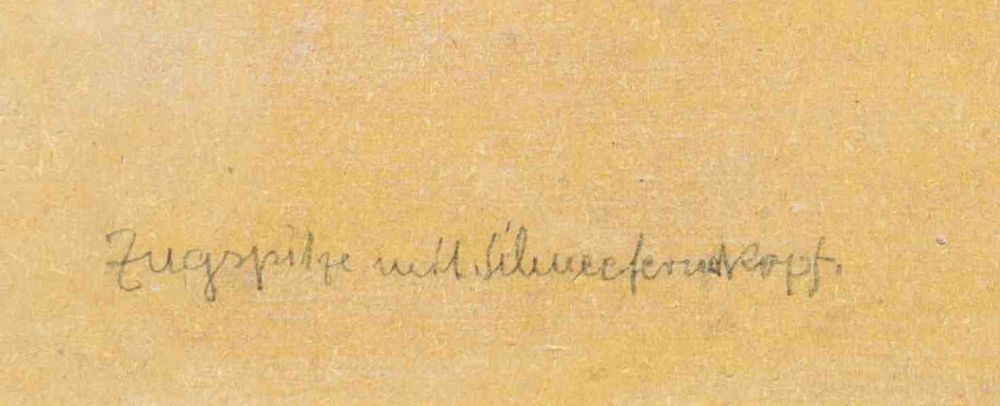 Zugspitze mit Schneefernerkopf.